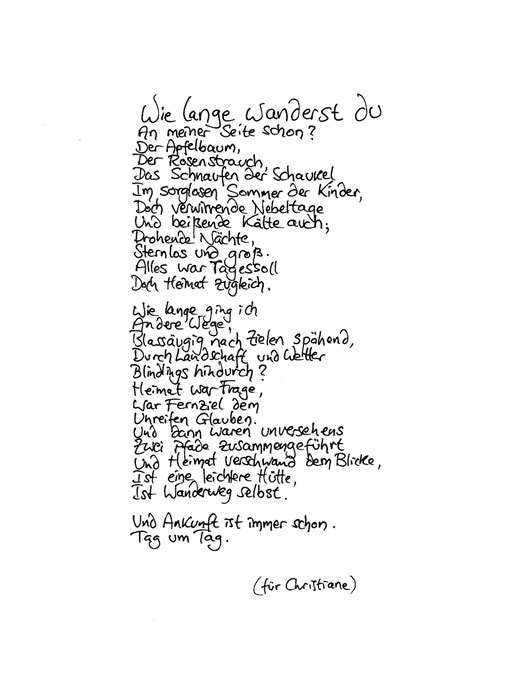 Wie lange wanderst du
An meiner Seite schon?
Der Apfelbaum,
Der Rosenstrauch,
Das Schnaufen der Schaukel
Im sorglosen Sommer der Kinder,
Doch verwirrende Nebeltage
Und beißende Kälte auch;
Drohende Nächte,
Sternlos und groß.
Alles war Tagessoll
Doch Heimat zugleich.
Wie lange ging ich
Andere Wege,
Blassäugig nach Zielen spähend,
Durch Landschaft und Wetter
Blindlings hindurch?
Heimat war Frage,
War Fernziel dem
Unreifen Glauben.
Und dann waren unversehens
Zwei Pfade zusammengeführt
Und Heimat verschwand dem Blicke,
Ist eine leichtere Hütte,
Ist Wanderweg selbst.
Und Ankunft ist immer schon.
Tag um Tag.
(für Christiane)